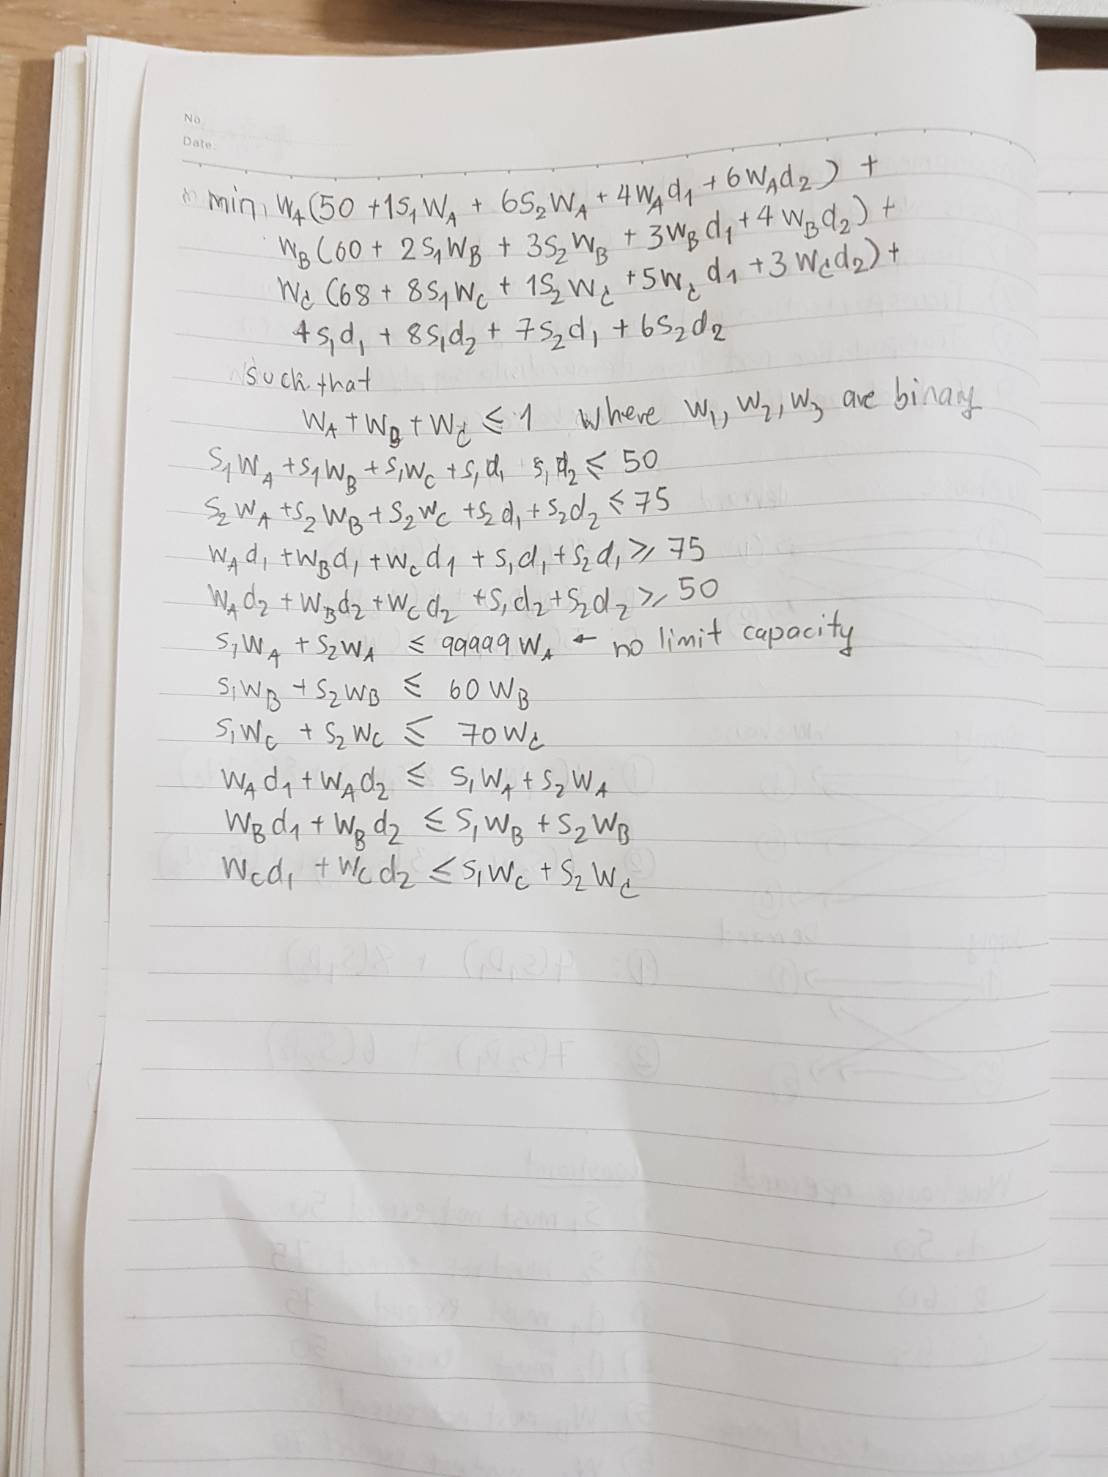 No.
Date:
min, W_A(50 + 1S_1W_A + 6S_2W_A + 4W_Ad_1 + 6W_Ad_2) +
W_B(60 + 2S_1W_B + 3S_2W_B + 3W_Bd_1 + 4W_Bd_2) +
W_C(68 + 8S_1W_C + 1S_2W_C + 5W_Cd_1 + 3W_Cd_2) +
4S_1d_1 + 8S_1d_2 + 7S_2d_1 + 6S_2d_2
such that
W_A + W_B + W_C ≤ 1 where W_1, W_2, W_3 are binary
S_1W_A + S_1W_B + S_1W_C + S_1d_1 S_1d_2 ≤ 50
S_2W_A + S_2W_B + S_2W_C + S_2d_1 + S_2d_2 ≤ 75
W_Ad_1 + W_Bd_1 + W_Cd_1 + S_1d_1 + S_2d_1 ≥ 75
W_Ad_2 + W_Bd_2 + W_Cd_2 + S_1d_2 + S_2d_2 ≥ 50
S_1W_A + S_2W_A ≤ 99999W_A ← no limit capacity
S_1W_B + S_2W_B ≤ 60W_B
S_1W_C + S_2W_C ≤ 70W_C
W_Ad_1 + W_Ad_2 ≤ S_1W_A + S_2W_A
W_Bd_1 + W_Bd_2 ≤ S_1W_B + S_2W_B
W_Cd_1 + W_Cd_2 ≤ S_1W_C + S_2W_C